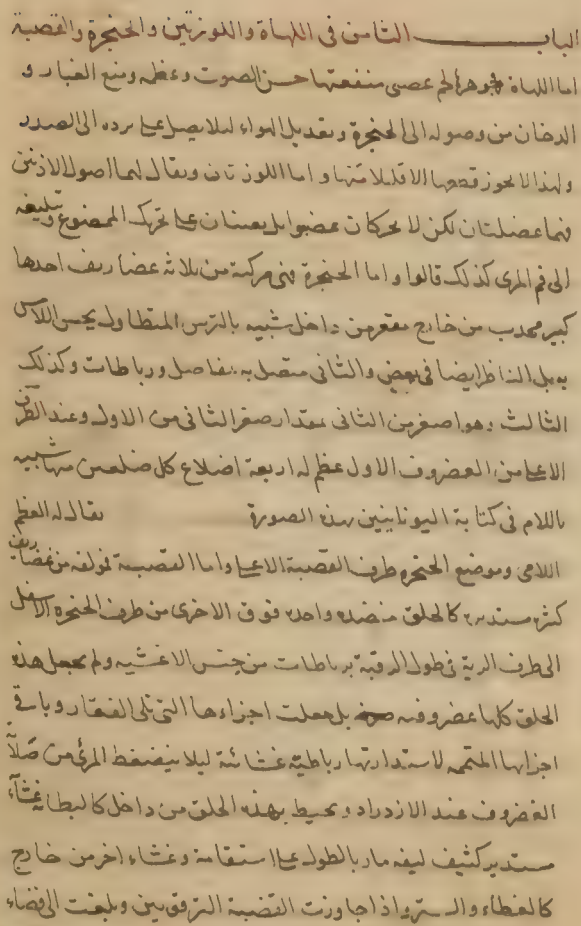 الباب الثامن فى اللهاة واللوزتين والحنجرة والقصبة
اما اللهاة فجوهرها لحم عصبى منفعتها حسن الصوت وعظمه ومنع الغبار و
الدخان من وصوله الى الحنجرة وتعديل الهواء ليلا يصل على برده الى الصدر
ولهذا لا يجوز قطعها الا قليلا منها واما اللوزتان ويقال لهما اصول الاذنين
فهما عضلتان لكن لا يحركان عضوا بل يعينان على تحريك الممضوغ وتبليغه
الى فم المرى كذلك قالوا واما الحنجرة فهى مركبة من ثلاثة غضاريف احدها
كبير محدب من خارج مقعر من داخل شبيه بالترس المتطاول يحس اللامس
به بل الناظر ايضا فى بعض والثانى متصل به بمفاصل ورباطات وكذلك
الثالث وهو اصغر من الثانى بمقدار صغر الثانى من الاول وعند الطرف
الاعلى من الغضروف الاول عظم له اربعة اضلاع كل ضلعين منها شبيه
باللام فى كتابة اليونانيين بهذه الصورة يقال له العظم
اللامى وموضع الحنجره طرف القصبة الاعلى واما القصبة فمولفه من غضاريف
كثيره مستديره كالحلق منضده واحده فوق الاخرى من طرف الحنجره الاسفل
الى طرف الرية فى طول الرقبة برباطات من جنس الاغشيه ولم يجعل هذه
الحلق كلها غضروفيه بل جعلت اجزاءها التى تلى الفقار وباقى
اجزائها المتممه لاستدارتها رباطية غشائية ليلا ينضغط المرى من صلابة
الغضروف عند الازدراد ويحيط بهذه الحلق من داخل كالبطانه غشاء
مستدير كثيف ليفه مار بالطول على استقامة وغشاء اخر من خارج
كالغطاء والستر واذا جاوزت القصبة الترقوتين وبلغت الى فضاء